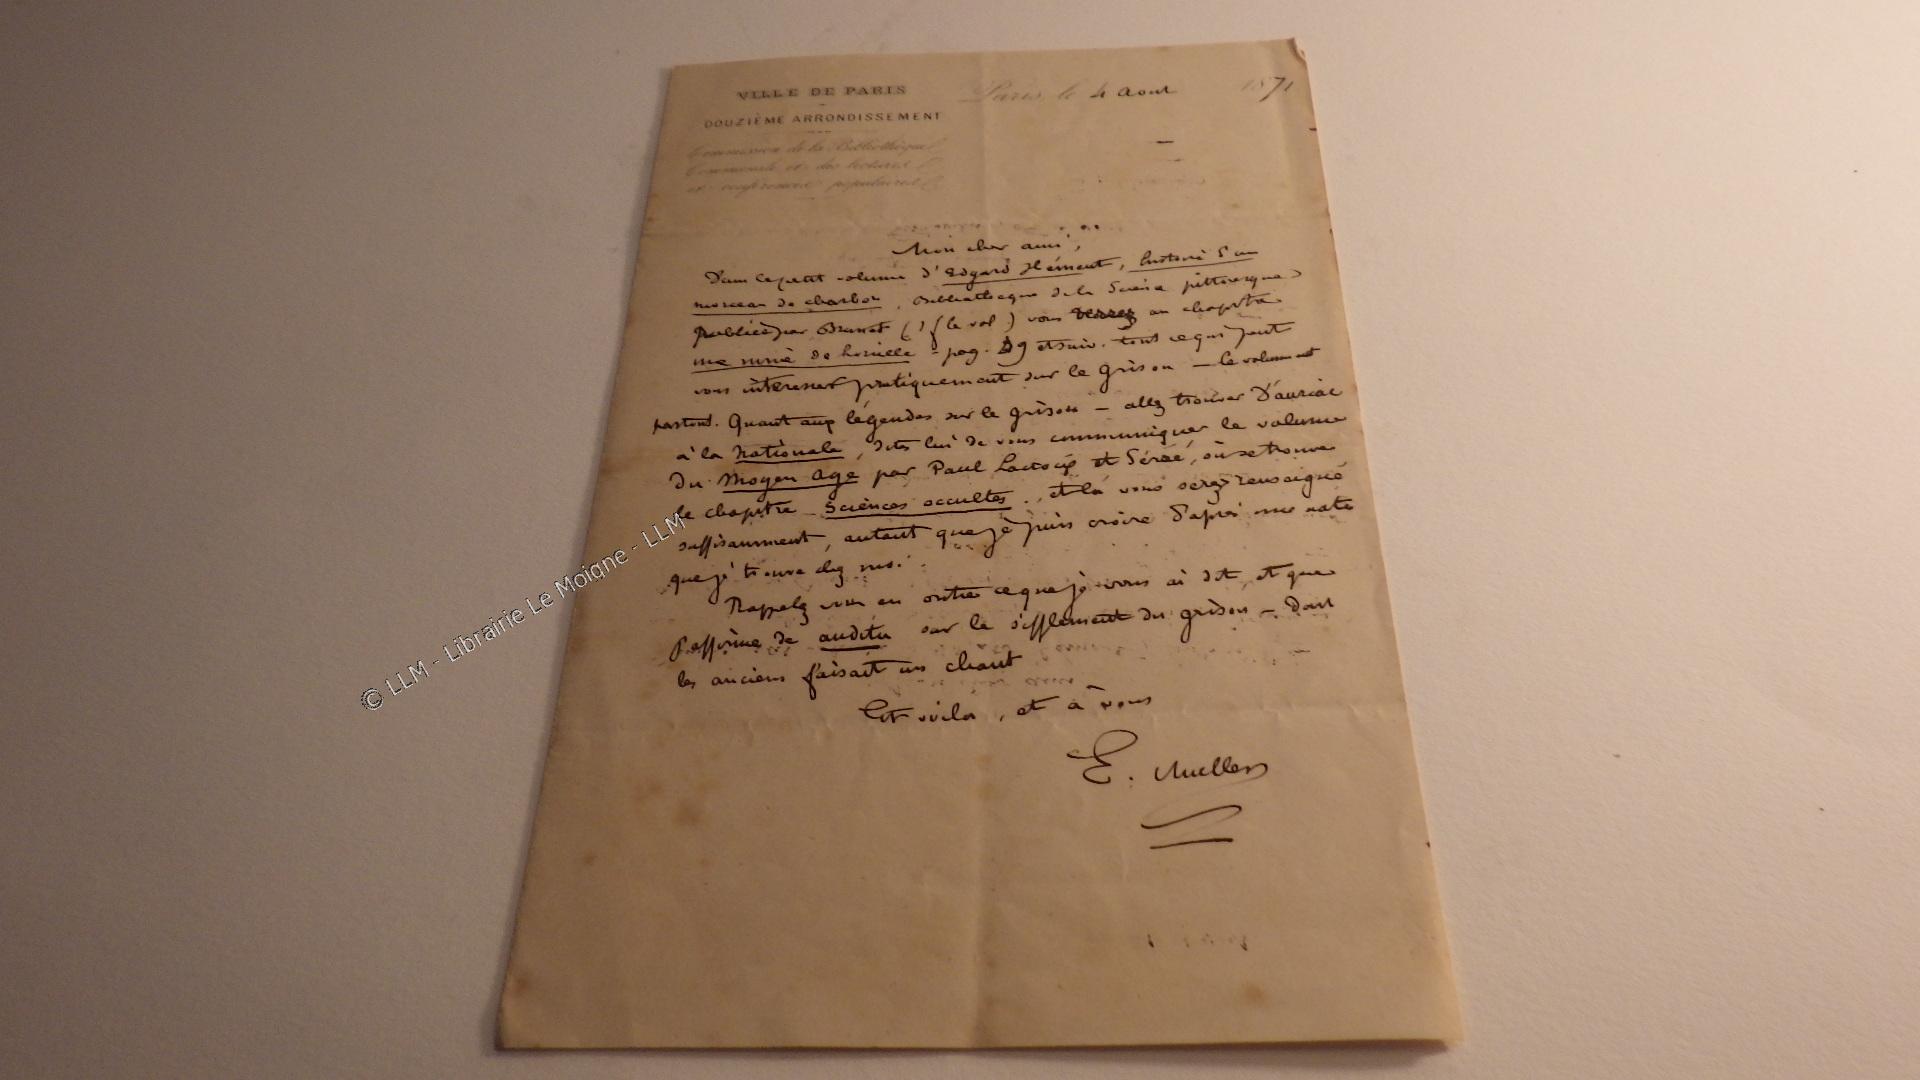 VILLE DE PARIS
Paris, le 4 Aout 1871
DOUZIÈME ARRONDISSEMENT
Commission de la Bibliothèque
Communale et des lectures
et conférences populaires
Mon cher ami,
Dans le petit volume d'Edgard Hément, histoire d'un
morceau de charbon, Bibliothèque de la Science pittoresque
publiée par Brunet (1f le vol) vous verrez au chapitre
une mine de houille - pag. 29 et suiv. tout ce qui peut
vous intéresser pratiquement sur le grisou - le volume est
partout. Quant aux légendes sur le grisou - allez trouver D'auriac
à la Nationale, dites lui de vous communiquer le volume
du Moyen Age par Paul Lacroix et Séré, où se trouve
le chapitre Sciences occultes, et là vous serez renseigné
suffisamment, autant que je puis croire d'après une note
que je trouve chez moi.
Rappelez vous en outre ce que je vous ai dit, et que
j'affirme de auditu sur le sifflement du grisou - dont
les anciens faisait un chant
Et voila, et à vous
E. Muller
© LLM - Librairie Le Moigne - LLM